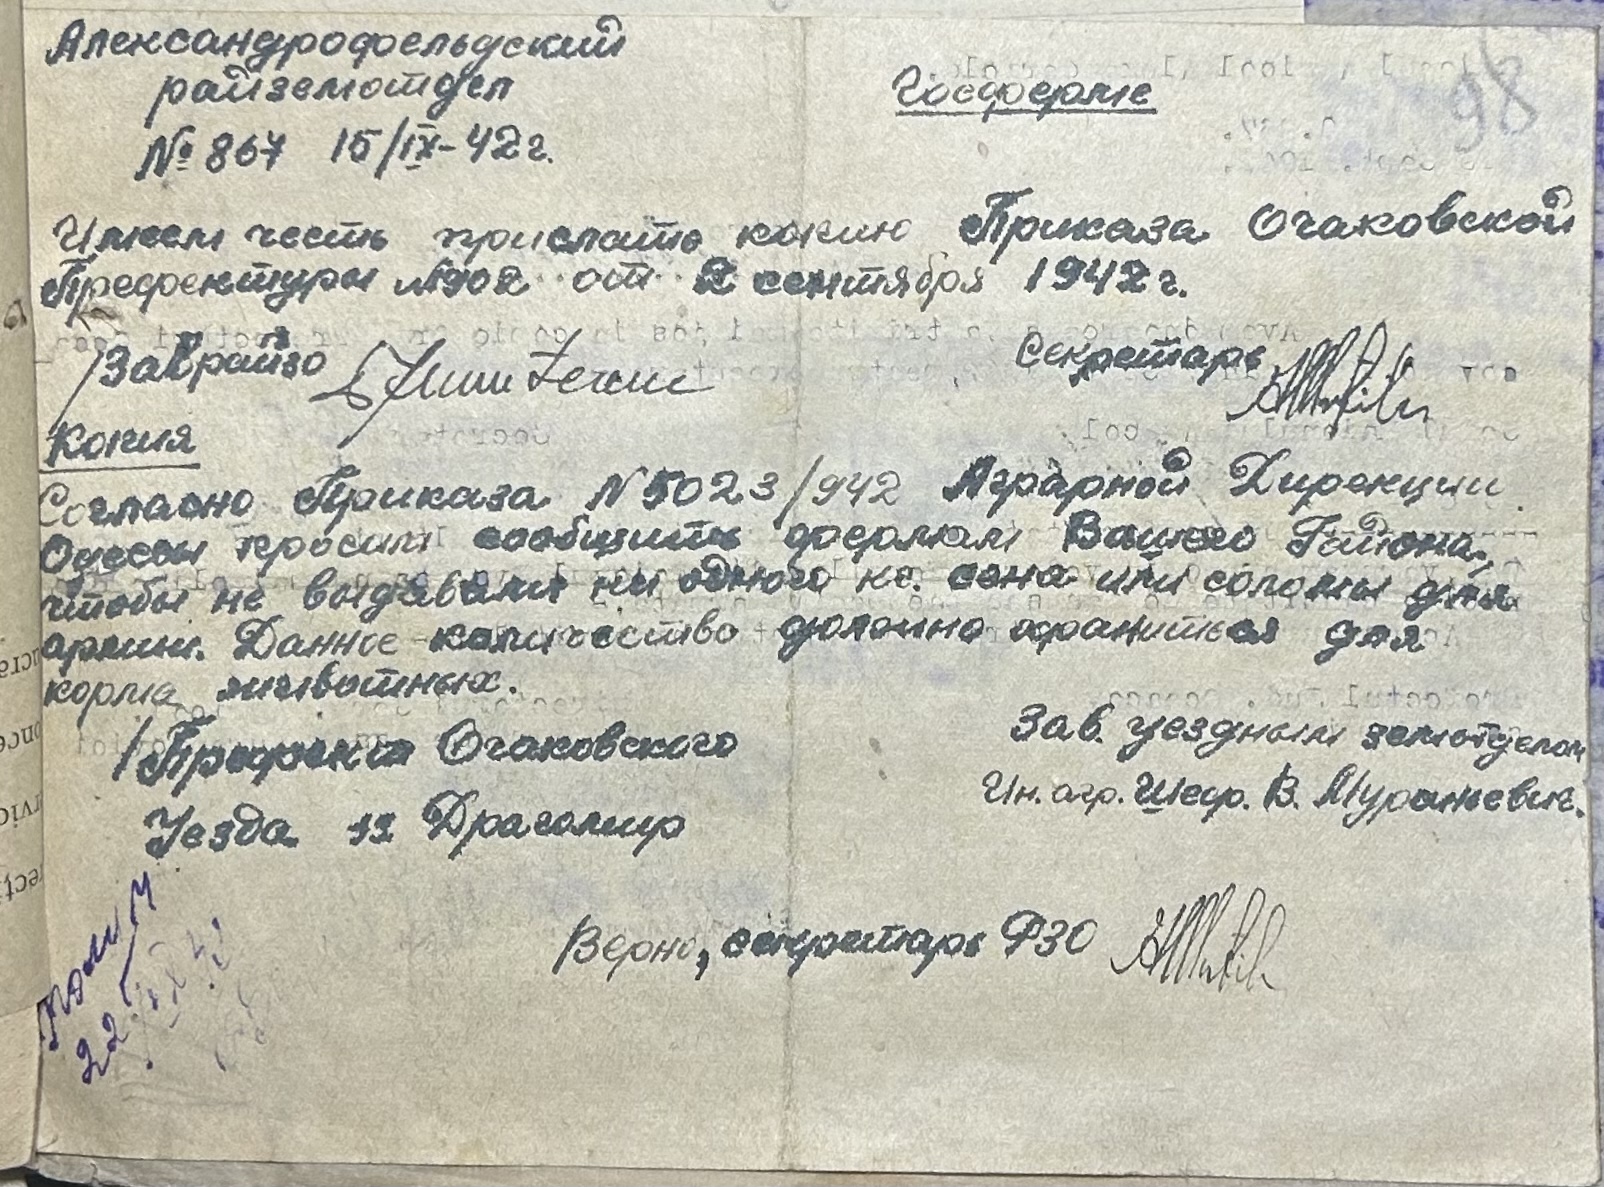 Александрофельдский
райземотдел
№ 867 15/IX-42 г.
Госферме
98
Имеем честь прислать копию Приказа Очаковской
Префектуры №902 от 2 сентября 1942 г.
/Заврайзо
Секретарь
Копия
Согласно Приказа N 5023/942 Аграрной Дирекции
Одессы просим сообщить фермам Вашего Района,
чтобы не выдавали ни одного кг. сена или соломы для
армии. Данное количество должно храниться для
корма животных.
/Префект Очаковского
Уезда Драгомир
Зав. уездным земотделом
Ин. агр. Шеф. В. Мураневич.
Верно, секретарь РЗО
22